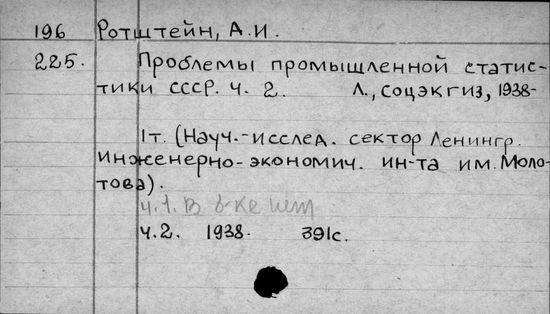 196 Ротштейн, А.И.
225. Проблемы промышленной статис-
тики СССР. Ч. 2. Л., Соцэкгиз, 1938-
1т. (Науч.-исслед. сектор Ленингр.
Инженерно-экономич. ин-та им. Моло-
това).
ч.1. В б-ке нет
ч.2. 1938. 391с.